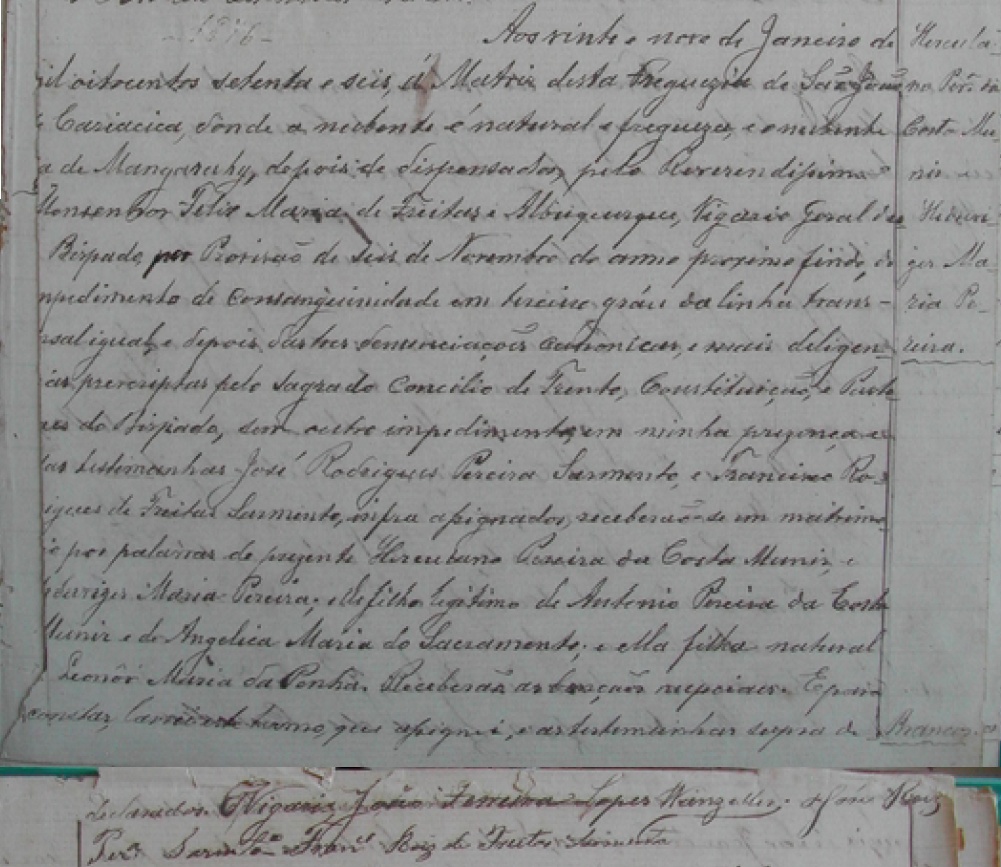 -1876-
Aos vinte e nove de Janeiro de
il oitocentos setenta e seis, á Matriz desta Freguezia de São João
e Cariacica, donde a nubente é natural e fregueza, e o nubente
a de Mangarahy, depois de dispensados pelo Reverendissimo
Monsenhor Felix Maria de Freitas e Albuquerque, Vigario Geral do
Bispado, por Provisão de seis de Novembro do anno proximo findo, do
mpedimento de Consanguinidade em terceiro gráu da linha trans-
rsal igual, e depois das tres denunciações canonicas, e mais deligen
as prescriptas pelo Sagrado Concilio de Trento, Constituição, e Pasto
res do Bispado, sem outro impedimento, em minha prezença e
das testimunhas José Rodrigues Pereira Sarmento, e Francisco Ro-
igues de Freitas Sarmento, infra assignados, receberão-se em matrimo
io por palavras de prezente Herculano Pereira da Costa Muniz, e
Maria Pereira; elle filho legitimo de Antonio Pereira da Costa
Muniz e de Angelica Maria do Sacramento; e ella filha natural
Leonôr Maria da Penha. Receberão as bençãos nupciaes. E para
constar, lavrei este termo, que assignei, e as testemunhas supra de
clarados. O Vigario João Ferreira Lopes Wanzeller; José Roiz
Perª Sarmtº Franc Roiz de Freitas Sarmento
Hercula-
no Perª da
Costa Mu-
niz e
Heduvi-
ges Ma-
ria Pe-
reira.
Brancos.